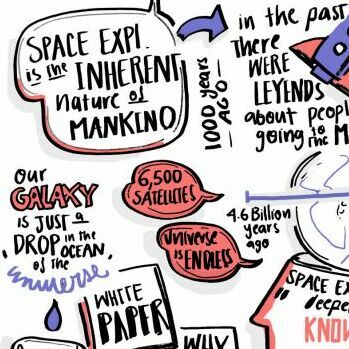 SPACE EXPL
is the INHERENT
nature of
MANKIND
1000 years
AGO
in the past
There
WERE
LEYENDS
about peopl
going to the M
our
GALAXY
IS JUST a
DROP in the
OCEAN
of the
universe
6,500
SATELLITES
Universe
is ENDLESS
4.6 Billion
years
ago
WHITE
PAPER
WHY
SPACE EX
deepe
KNOW